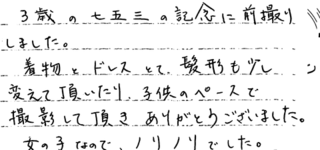 3歳の七五三の記念に前撮り
しました。
着物とドレスとで、髪形も少し
変えて頂いたり、子供のペースで
撮影して頂き ありがとうございました。
女の子なので、ノリノリでした。